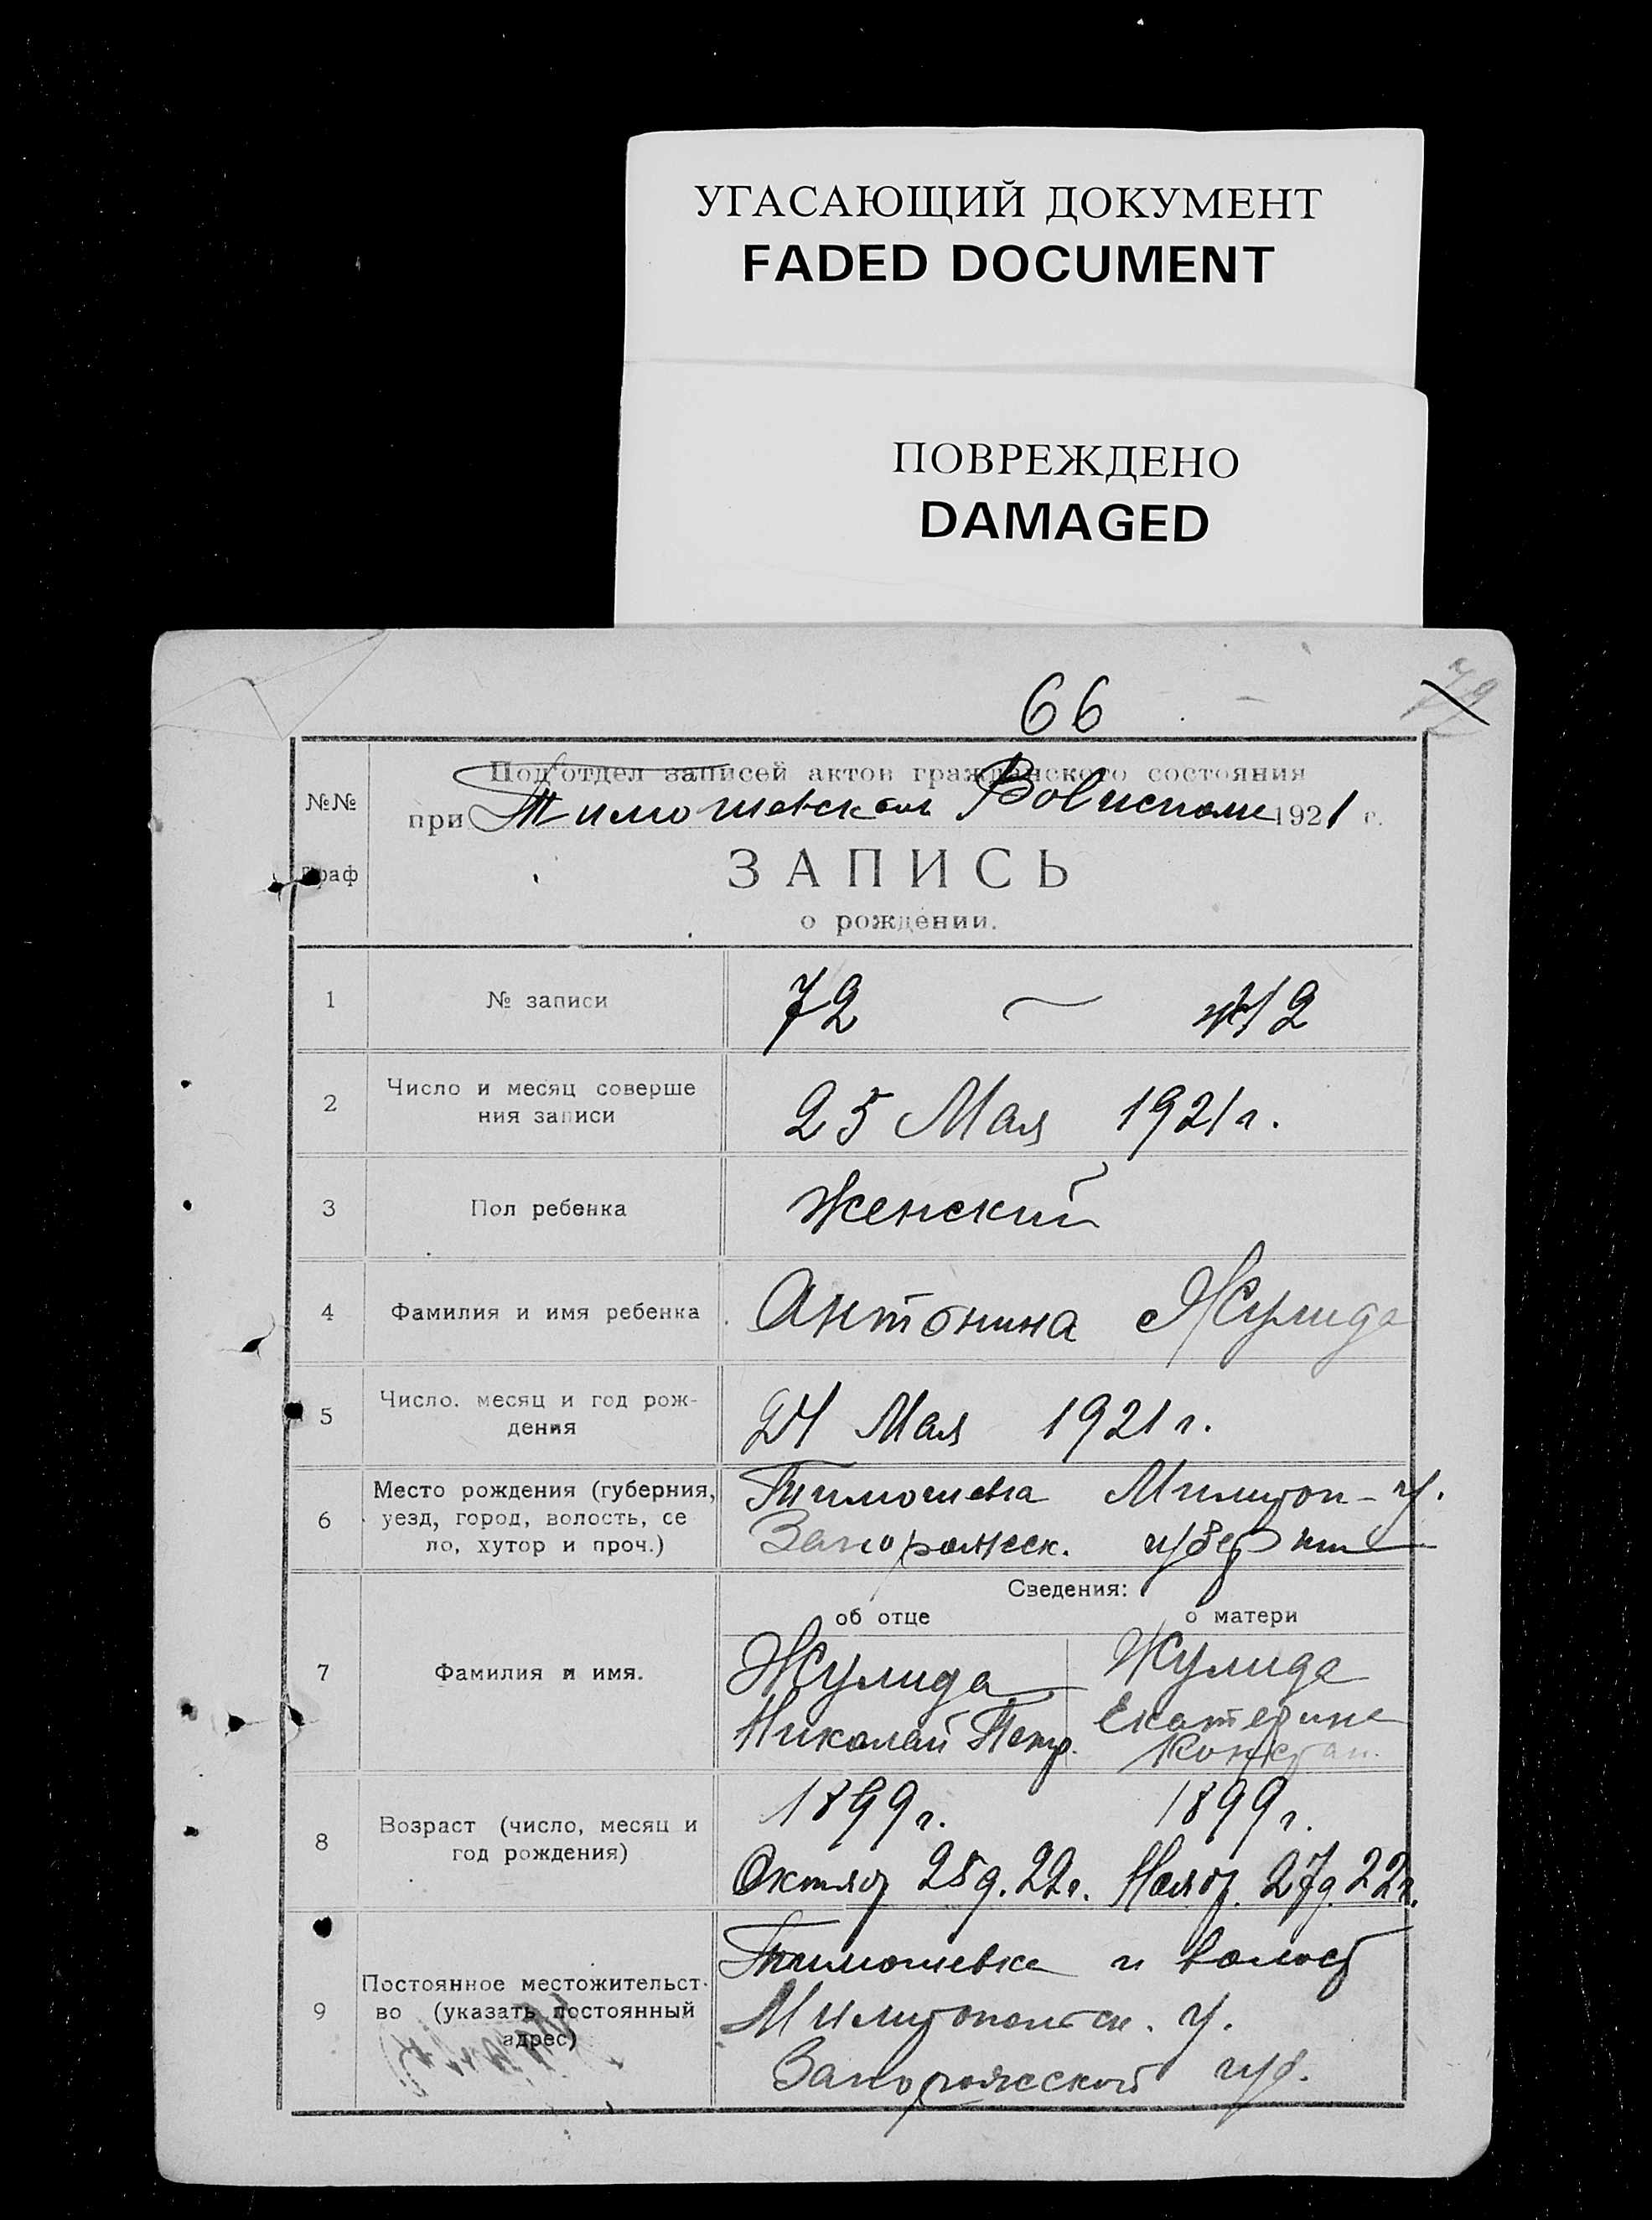 УГАСАЮЩИЙ ДОКУМЕНТ
FADED DOCUMENT
ПОВРЕЖДЕНО
DAMAGED
66
№№
Граф
Под'отдел записей актов гражданского состояния
при Тимошевском Волисполк 1921 г.
ЗАПИСЬ
о рождении.
1 № записи 72 — ж/2
2 Число и месяц соверше
ния записи 25 Мая 1921 г.
3 Пол ребенка Женский
4 Фамилия и имя ребенка Антонина Жулида
5 Число. месяц и год рож-
дения 24 Мая 1921 г.
6 Место рождения (губерния,
уезд, город, волость, се
ло, хутор и проч.)
Тимошевка Милитоп-у.
Запорожск. губернии
Сведения:
об отце о матери
7 Фамилия и имя.
Жулида Жулида
Николай Петр. Екатерина
Констан.
8 Возраст (число, месяц и
год рождения)
1899 г. 1899 г.
Октяб 25 д. 22 г. Нояб. 27 д. 22 г.
9 Постоянное местожительст-
во (указать постоянный
адрес)
Тимошевка и волост
Милитопольск. у.
Запорожской губ.